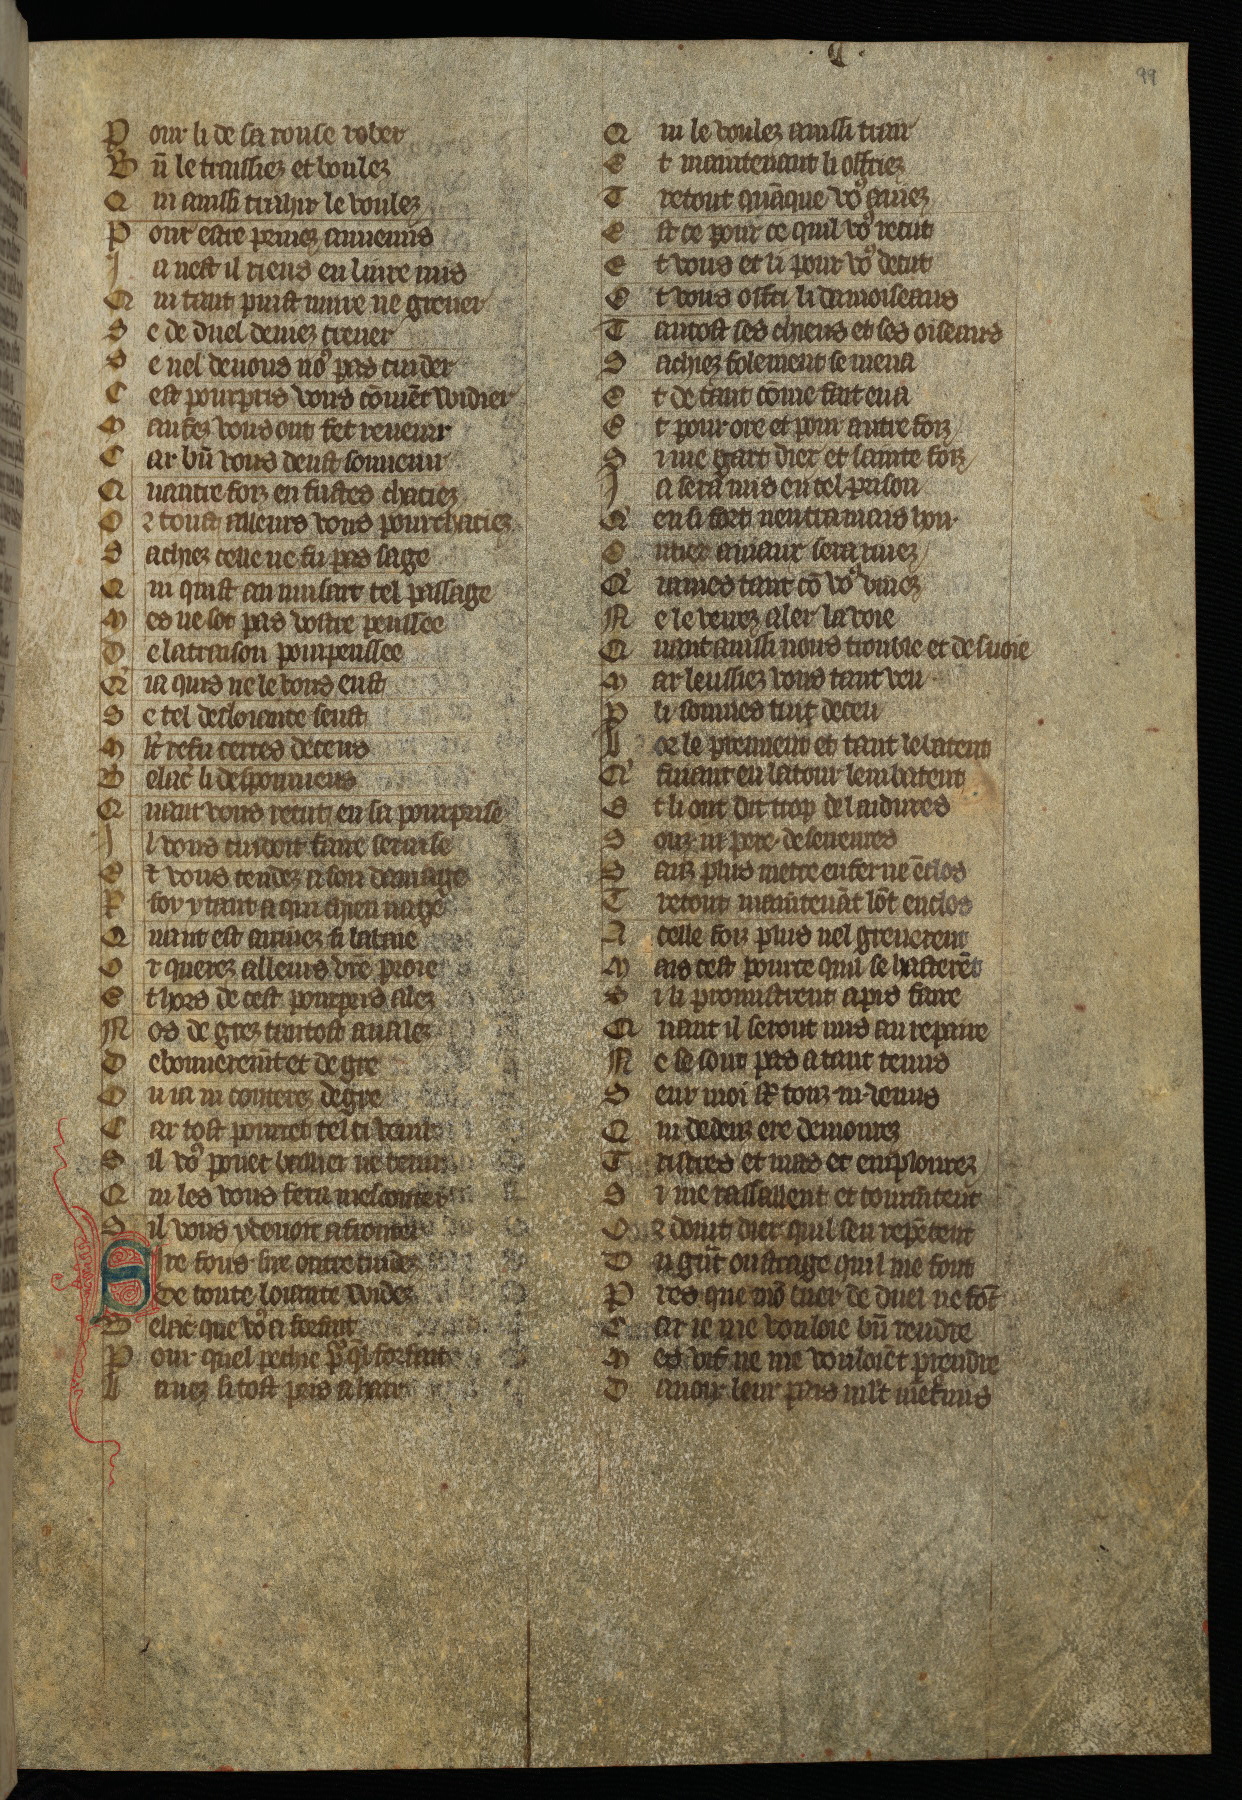 99
Pour li de sa rouse rober
Bn̄ le traissiez et boulez
Qui ainssi trahir le voulez
Pour estre peniez anuenus
Ja nest il riens en liure mis
Qui tant puist nuire ne greuer
Se de duel deuiez creuer
Se nel deuons noꝰ pas cuider
Cest pourpris vous cōuiēt widier
Maufez vous ont fet reuenir
Car bn̄ vous deust souuenir
Quautre foiz en fustes chaciez
Or tost ailleurs vous pourchaciez
Sachiez celle ne fu pas sage
Qui quist au musart tel passage
Mes ne sot pas vostre penssee
De la traison pourpenssee
Qia quis ne le vous eust
Se tel desloiaute seust
Mlt̄ refu certes deceus
Belac̄ li despourueus
Quant vous recut en sa pourprise
Il vous cuidoit faire seruise
Et vous tendez a son damage
Par foy ytant a qui chien nage
Quant est arriuez si labaie
Or querez ailleurs vr̄e proie
Et hors de cest pourpris alez
Nos de grez tantost aualez
Debonnerem̄t et de gre
Ou ia ni conterez degre
Car tost pourret tel ci venir
Sil voꝰ pouet baillier ne tenir
Qui les vous fera mesconter
Sil vous y deuoit afronter
Sire fous sire outrecuidez
De toute loiaute widez
Belac̄ que voꝰ a forfait
Pour quel pechie pͬ ql̄ forfait
Lauez si tost pris a hair
Qui le voulez ainssi trair
Et maintenant li offriez
Trestout quāque voꝰ auiez
Est ce pour ce quil voꝰ recut
Et vous et li pour voꝰ decut
Et vous offri li damoiseaus
Tantost ses chiens et ses oiseaus
Sachiez folement se mena
Et de tant cōme fait en a
Et pour ore et pour autre foiz
Si me gart diex et sainte foiz
Ja sera mis en tel prison
Quen si fort nentra mais hon
Ontier aniaux sera riuez
Que iames tant cō voꝰ viuez
Ne le verrez aler la voie
Quant ainssi nous trouble et desuoie
Mar leussiez vous tant veu
Par li sommes tuit deceu
Lor le prennent et tant le batent
Que fuiant en la tour lembatent
Et li ont dit trop de laidures
Souz .iii. pere. de serreures
Sanz plus metre en fer ne ēclos
Trestout maintenāt lōt enclos
A celle foiz plus nel greuerent
Mais cest pource quil se hasterēt
Si li promistrent a pis faire
Quant il seront mis au repaire
Ne se sont pas a tant tenus
Seur moi st̄ touz .iii. venus
Qui dedenz ere demourez
Tristres et mas et emplourez
Si me rassaillent et tourm̄tent
Or doint diex quil sen repētent
Du gn̄t oustrage quil me font
Pres que mō cuer de duel ne fōt
Car ie me vouloie bn̄ rendre
Mes vif ne me vouloiēt prendre
Dauoir leur pais mlt̄ mētremis